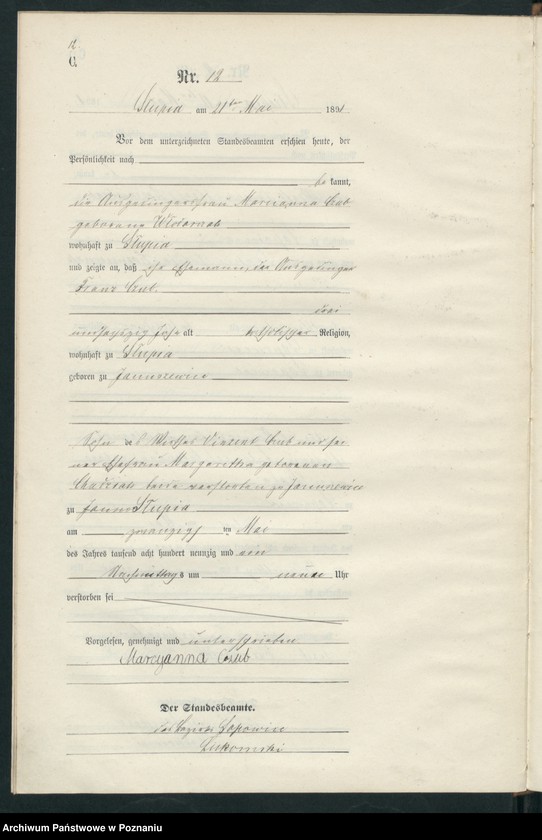 12.
C.
Nr. 12
Slupia am 21ten Mai 1891
Vor dem unterzeichneten Standesbeamten erschien heute, der
Persönlichkeit nach
be kannt,
die Ausgedingersfrau Marcianna
geborene
wohnhaft zu Slupia
und zeigte an, daß ihr Ehemann, der Ausgedinger
Franz
drei
und sechszig Jahr alt katholischer Religion,
wohnhaft zu Slupia
geboren zu Januszewice
Sohn des Wirthes Vincent und sei
ner Ehefrau Margaretha geborenen
beide verstorben zu Januszewice
zu Slupia
am zwanzigs ten Mai
des Jahres tausend acht hundert neunzig und ein
Nachmittags um neun Uhr
verstorben sei
Vorgelesen, genehmigt und unterschrieben
Maryanna
Der Standesbeamte.
des Bezirks
Lukomski
Archiwum Państwowe w Poznaniu